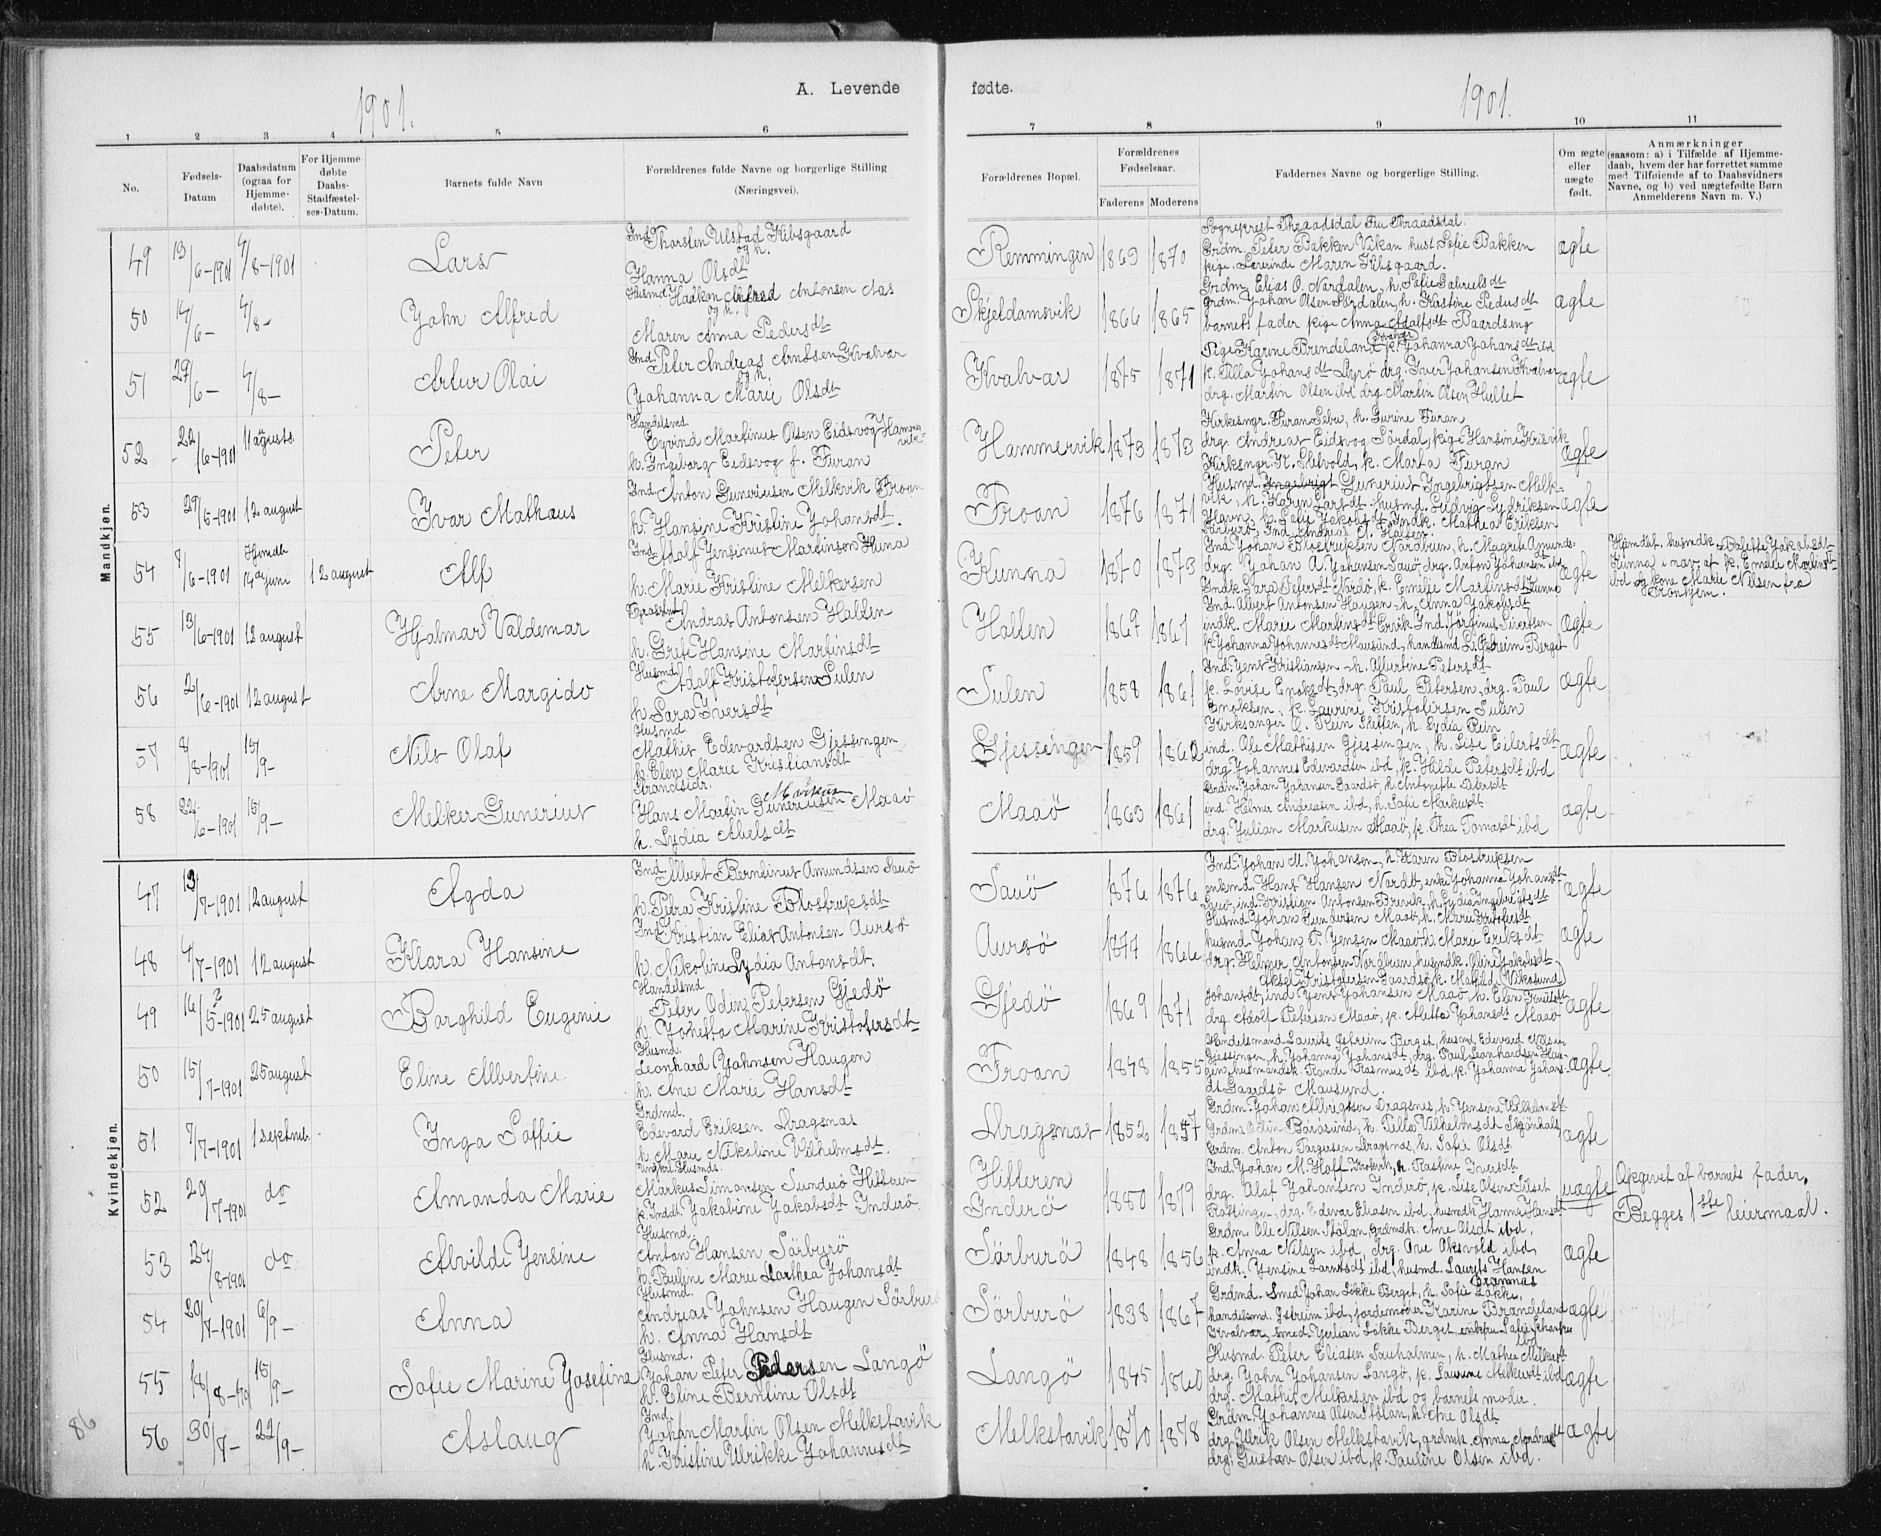 1901.
A. Levende
fødte.
1901.
1 2 3 4 5 6
7 8 9 10 11
No.
Fødsels-
Datum
Daabsdatum
(ogsaa for
Hjemme-
døbte).
For Hjemme-
døbte
Daabs-
Stadfæstel-
ses-Datum.
Barnets fulde Navn
Forældrenes fulde Navne og borgerlige Stilling
(Næringsvei).
Forældrenes Bopæl.
Forældrenes
Fødselsaar.
Faderens Moderens
Faddernes Navne og borgerlige Stilling.
Om ægte
eller
uægte
født.
Anmærkninger
(saasom: a) i Tilfælde af Hjemme-
daab, hvem der har forrettet samme
med Tilføiende af to Daabsvidners
Navne, og b) ved uægtefødte Børn
Anmelderens Navn m. V.)
Mandkjøn.
49 13/6-1901 4/8-1901 Lars
Ind. Thorsten Ulstad Kibsgaard
og h.
Hanna Olsdt
Remmingen 1863 1870
Sogneprest Thraadsdal Fru Thraadsdal.
Grdm. Peter Bakken Vikan hust. Sofie Bakken
pige. Lærerinde Maren Kibsgaard.
ægte
50 14/6- 4/8- Yohn Alfred
Husmd Haakon Alfred Antonsen Næs
og h.
Maren Anna Pedersdt
Skjeldamsvik 1866 1865
Grdm. Elias O. Nordalen, h. Sofie Gabrielsdt
grdm. Yohan Olsen Sördalen, h. Kastine Pedersdt
barnets fader pige Anna Adolfsdt Baardseng
ægte
51 29/6- 4/8- Artur Olai
Ind. Peter Andreas Arntsen Kvalvar
og h.
Yohanna Marie Olsdt
Kvalvar 1875 1871
Pige Karine Brendeland p. Yohanna Yohansdt ibd
drg. Martin Olsen ibd drg. Martin Olsen Hullet
ægte
52 22/6-1901 11 august. Peter
Handelsmd
Eyvind Martinus Olsen Eidsvog Hammer
vik
h. Ingeborg Eidsvog f. Furan
Hammervik 1873 1873
Kirkesngr. Furan Sebu, h. Gurine Furan
drg. Andreas Eidsvog Sördal, pige Hansine Krisvik
Kirksngr. K. Sletvold, p. Marta Furan
ægte
53 29/5-1901 12 august Ivar Mathæus
Ind. Anton Guneriusen Melkvik Froan
h. Hansine Kristine Yohansdt.
Froan 1876 1871
Husmd. Ingebrigt Gunerius Ingebrigtsen Melk-
vik, h. Karen Larsdt. husmd. Ludvig Lydriksen
Havn, p. Sofie Yakobsdt Indk. Mathea Eriksen
ægte
54 7/6-1901 Hjemdbt 14de juni 12 august Alf
Ind. Adolf Yensinus Martinson Kunna
h. Marie Kristine Melkersen
Kunna 1870 1873
Ind. Yohan Blostrupsen Nordbuen, h. Magrete Amunds-
drg. Yohan A. Yohansen Sauö drg. Anton Yohansen ibd
Indk. Sara Petersdt Nordö, p. Emelie Martinsdt Kunna
ægte
Hjemdbt. husmdk. Balette Yakobsdt
Kunna i nærv. af p. Emelie Martinsdt
ibd og kone Marie Nilsen fra
Tronhjem.
55 13/6-1901 12 august Hjalmar Valdemar
Andras Antonsen Halten
h. Grete Hansine Martinsdt
Halten 1867 1867
Ind. Albert Antonsen Haugen, h. Anna Yakobsdt
indk. Marie Martinsdt Ervik Ind. Jörginus Sivertsen
p. Yohanna Yohannesdt Mausund, handsmd L. Gstreim Berget
ægte
56 2/6-1901 12 august Arne Margido
Husmd.
Adolf Kristofersen Sulen
h. Sara Iversdt
Sulen 1858 1861
Ind. Yens Kristiansen, h. Albertine Petersdt
p. Lovise Enoksdt, drg. Paul Petersen, drg. Paul
Enoksen, p. Laurine Kristofersen Sulen
ægte
57 8/8-1901 15/9- Nils Olaf
Husmd.
Mathis Edevardsen Gjessingen
h. Elen Marie Kristiansdt
Gjessingen 1859 1862
Kirksanger O. Rein Sletten, h. Lydia Rein
ind. Ole Mathisen Gjessingen, h. Lise Eilertsdt
drg Yohannes Edevardsen ibd, p. Hilde Petersdt ibd
ægte
58 22/6-1901 15/9- Melker Gunerius
Strandsidr.
Hans Martin Guneriusen Markus Maaö
h. Lydia Abelsdt
Maaö 1863 1861
Grdm. Yohan Yohansen Gaardsö, h. Antonette Petersdt
ind. Helmer Andreasen ibd, h. Sofie Markusdt
drg. Yulian Markusen Maaö, p. Thea Tomasdt ibd
ægte
Kvindekjøn.
47 13/7-1901 12 august Agda
Ind. Albert Berntinus Amundsen Sauö
h. Petra Kristine Blostrupsdt
Sauö 1876 1876
Ind. Yohan M. Yohansen, h. Karen Blostrupsen
enkemd. Hans Hansen Nordbt, enke Yohanna Yohansdt
Sauö, ind. Kristian Antonsen Brevik, h. Lydia Ingebrigtsdt
ægte
48 4/7-1901 12 august Klara Hansine
Ind. Kristian Elias Antonsen Aursö
h. Nikoline Lydia Antonsdt.
Aursö 1877 1866
Husmd Yohan Gundersen Maaö, h. Marie Kristofersdt
husmd. Yohan P. Yensen Maaö h. Marie Eriksdt
drg. Helmer Antonsen Nordbuen, husmdk. Oline Yakobsdt
ægte
49 16/5-1901 25 august Borghild Eugenie
Handelsmd
Peter Oden Petersen Gjedö
h. Yohetta Marine Kristofersdt
Gjedö 1869 1871
Aksel Kristofersen Gaardsö, p. Mathild (Vikasund)
Johansdt, ind Yens Yohansen Maaö, h. Elen Knutsdt
drg. Adolf Petersen Maaö, p. Aletta Yohansdt Maaö
ægte
50 15/7-1901 25 august Eline Albertine
Husmd.
Leonhard Yohnsen Haugen
h. Ane Marie Hansdt
Froan 1848 1855
Handelsmand Laurits Gstreim Berget, husmd Edevard Nilsen
Gjessingen, h. Yohanna Yohansdt, drg. Paul Leonhardsen Hau-
gen, husmandsk. Rande Rasmusdt ibd, p. Yohanna Yohans-
dt Gaardsö Mausund.
ægte
51 7/7-1901 1 septmb. Inga Soffie
Grdmd.
Edevard Eriksen Dragsnas
h. Marie Nikoline Vilhelmsdt.
Dragsnas 1852 1857
Grdm. Yohan Albrigtsen Dragsnes, h. Yensine Vilhelmsdt
Grdm. Elin Borösund, h. Pella Vilhelmsdt Skjönhals
Grdm. Anton Torgersen Dragsnas, h. Sofie Olsdt
ægte
52 29/7-1901 do Amanda Marie
Ungkrl. Husmds.
Markus Simonsen Sundsö Hitteren
p. Inddt. Yakobine Yakobsdt Inderö
Hitteren
Inderö 1880 1879
Ind. Yohan M. Hoff Krokvik, h. Rastine Iversdt
drg. Olaf Yohansen Inderö, p. Lise Olsen Silset
Rottingen, drg. Edevar Eliasen ibd, husmdk Hanna Hansdt
uægte
Opgivet af barnets fader.
Begges 1ste leiermaal.
53 24/8-1901 do Alvilde Yensine
Husmd.
Anton Hansen Sörburö
h. Pauline Marie Dorthea Yohansdt
Sörburö 1848 1856
Grdm. Ole Nilsen Stölan, grdmdk. Ane Olsdt ibd,
p. Anna Nilsen ibd, drg. Ove Aksvold ibd,
indk. Yensine Larntsdt ibd, husmd. Laurits Hansen
ægte
54 20/7-1901 6/9- Anna
Husmd.
Andreas Yohnsen Haugen Sörburö
h. Anna Hansdt
Sörburö 1838 1867
Grdmd. Smed Yohan Lökke Berget, h. Sofie Lökke,
handelsmd. Gstreim ibd, jordemoder Karine Brandeland
Kvalvar, smed. Yulian Lökke Berget,
ægte
55 18/8- 15/9- Sofie Marine Yosefine
Husmd.
Yohan Peter Pedersen Langö
h. Eline Berntine Olsdt
Langö 1845 1860
Husmd. Peter Eliasen Sauholmen, h. Mathea Melkersdt
drg. Yohn Yohansen Langö, p. Laurine Melkersdt ibd
drg. Mathis Melkersen ibd og barnets moder.
ægte
56 30/7- 22/9- Aslaug
Ind.
Yohan Martin Olsen Melkstavik
h. Kristine Ulrikke Yohannesdt
Melkstavik 1870 1878
Grdm. Yohannes Olsen Stölan, h. Ane Olsdt
drg. Ulrik Olsen Melkstavik, grdmdk. Anna Andreasdt
drg. Gustav Olsen ibd, p. Pauline Olsen ibd.
ægte
86